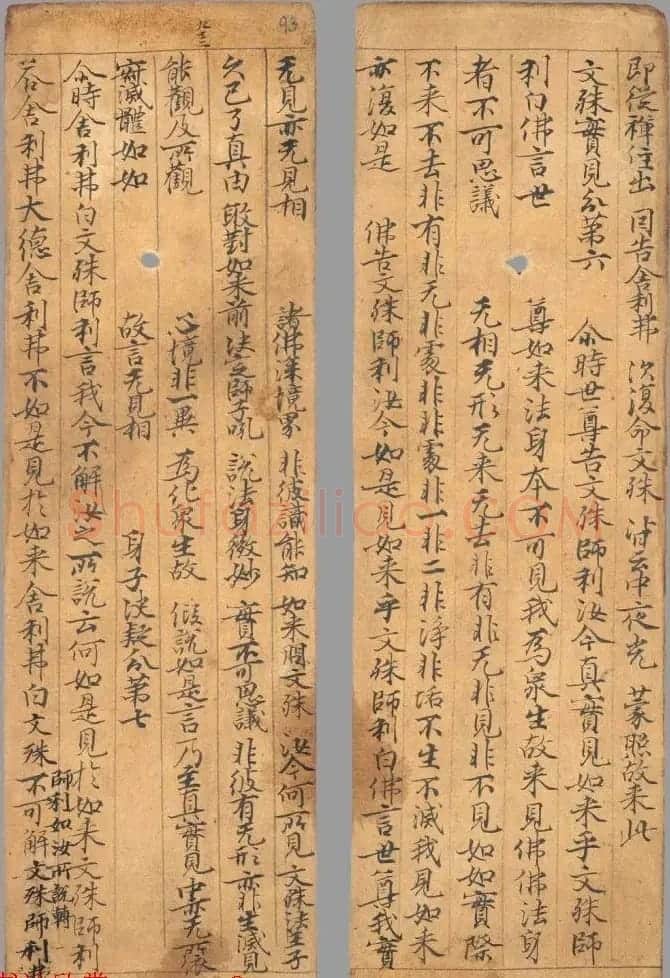 即從禪住出 因告舍利弗 次復命文殊 中夜光 蒙照故来此
文殊實見分第六 尒時世尊告文殊師利汝今真實見如来乎文殊師
利白佛言世 尊如来法身本不可見我為眾生故来見佛佛法身
者不可思議 无相无形无来无去非有非无非見非不見如如實際
不来不去非有非无非處非非處非一非二非淨非垢不生不滅我見如来
亦復如是 佛告文殊師利汝今如是見如来乎文殊師利白佛言世尊我實
无見亦无見相 諸佛深境界 非彼識能知 如来問文殊 汝今何所見 文殊法王子
久已了真由 敢對如来前 法王師子吼 說法身微妙 實不可思議 非彼有无形 亦非生滅見
能觀及所觀 心境非一異 為化眾生故 假說如是言 乃至真實見 中亦无
滅體如如 故言无見相 身子決疑分第七
尒時舍利弗白文殊師利言我今不解汝之所說云何如是見於如来文殊師利
答舍利弗大德舍利弗不如是見於如来舍利弗白文殊
師利如汝所說轉
不可解文殊師利
93
shufaziliao.com